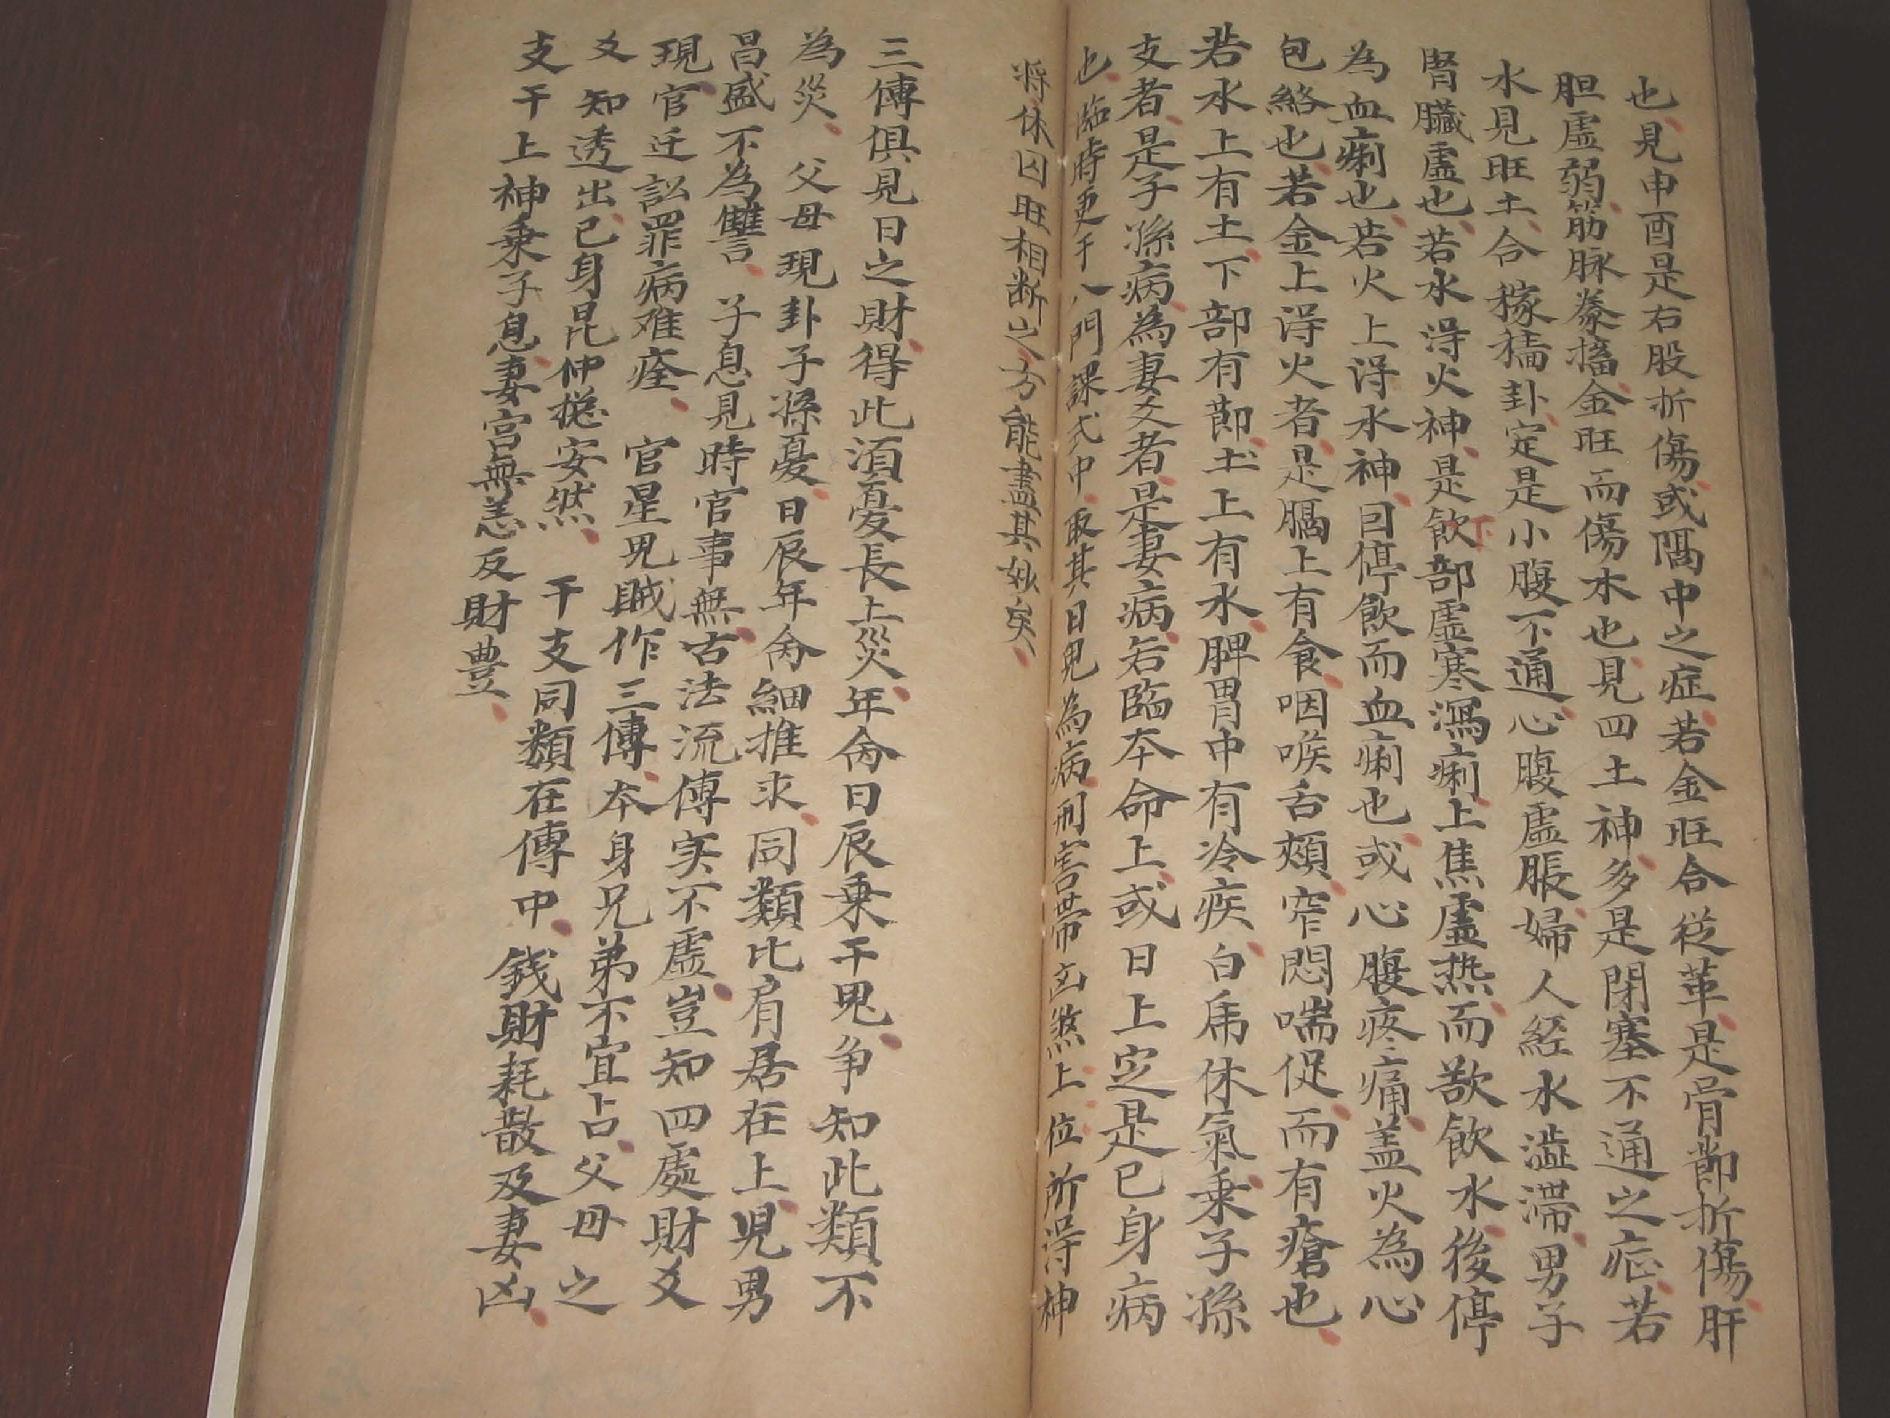 也見申酉是右股折傷或隔中之症若金旺合從革是骨節折傷肝
胆虛弱筋脉搐金旺而傷木也見四土神多是閉塞不通之症若
水見旺土合稼穡卦定是小腹不通心腹虛脹婦人經水澁滯男子
腎臟虛也若水淂火神是飲下部虛寒瀉痢上焦虛热而歆飲水後停
為血痢也若火上淂水神曰停飲而血痢也或心腹疼痛盖火為心
包絡也若金上淂火者是膈上有食咽喉舌頰窄悶喘促而有瘡也
若水上有土下部有節土上有水脾胃中有冷疾白虎休氣乘子孫
支者是子孫病為妻爻者是妻病若臨本命上或日上定是已身病
也臨時更于八門課式中取其日鬼為病刑害帶凶煞上位所淂神
將休囚旺相断之方能盡其妙矣
三傳俱見日之財得此湏憂長上災年命日辰乘干鬼争知此類不
為災父母現卦子孫憂日辰年命細推求同類比肩居在上児男
昌盛不為讐子息見時官事無古法流傳实不虛豈知四處財爻
現官迁訟罪病难痊官星鬼賊作三傳本身兄弟不宜占父母之
爻知透出已身昆仲揔安然干支同類在傳中錢財耗散及妻凶
支干上神乘子息妻宮無恙反財豊